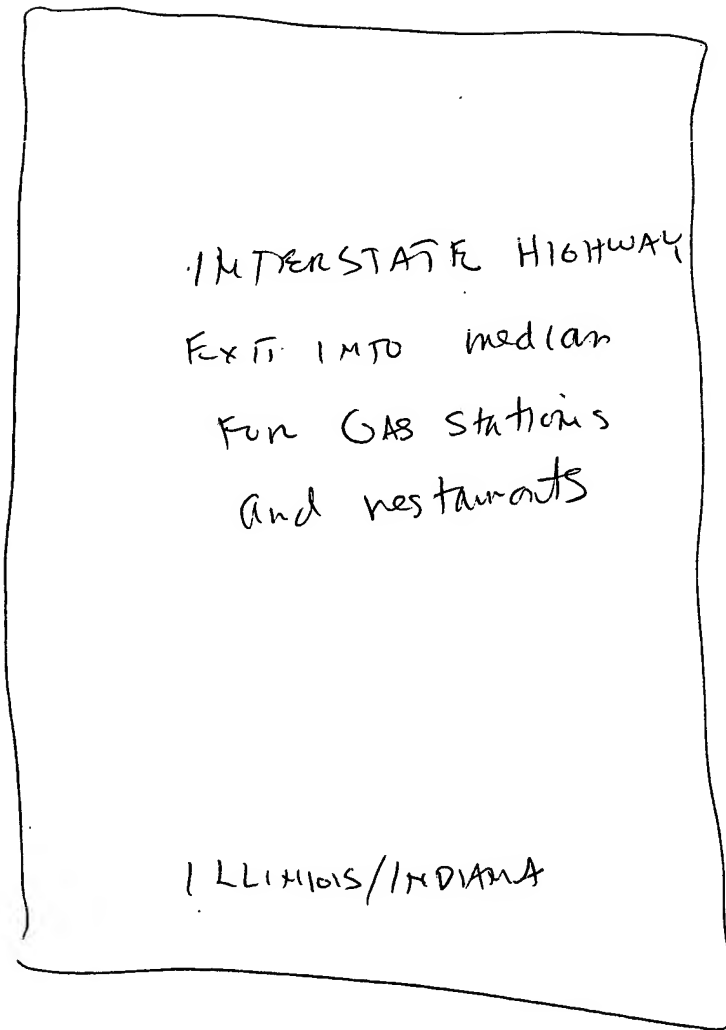 INTERSTATE HIGHWAY
EXIT INTO median
FOR GAS stations
and restaurants
ILLINOIS/INDIANA